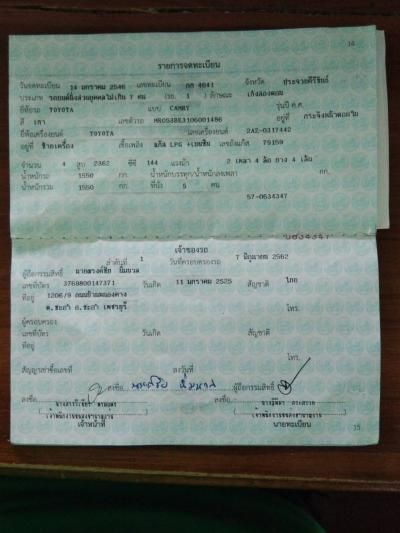 14
รายการจดทะเบียน
วันจดทะเบียน 14 มกราคม 2546 เลขทะเบียน กค 4641 จังหวัด ประจวบคีรีขันธ์
ประเภท รถยนต์นั่งส่วนบุคคลไม่เกิน 7 คน (รย. 1 ) ลักษณะ เก๋งสองตอน
ยี่ห้อรถ TOYOTA แบบ CAMRY รุ่นปี ค.ศ.
สี เทา เลขตัวรถ MR053BK3106001486 อยู่ที่
ยี่ห้อเครื่องยนต์ TOYOTA เลขเครื่องยนต์ 2AZ-0317442
อยู่ที่ เชื้อเพลิง เลขถังแก๊ส 79159
จำนวน 4 สูบ 2362 ซีซี 144 แรงม้า 2 เพลา 4 ล้อ ยาง 4 เส้น
น้ำหนักรถ 1550 กก. น้ำหนักบรรทุก/น้ำหนักลงเพลา กก.
น้ำหนักรวม 1550 กก. ที่นั่ง 5 คน
57-0634347
เจ้าของรถ
ลำดับที่ 1 วันที่ครอบครองรถ 7 มิถุนายน 2562
ผู้ถือกรรมสิทธิ์
เลขที่บัตร 3769800147371 วันเกิด 11 มกราคม 2525 สัญชาติ ไทย
ที่อยู่ 1206/9
ต.ชะอำ อ.ชะอำ เพชรบุรี โทร.
ผู้ครอบครอง
เลขที่บัตร วันเกิด สัญชาติ
ที่อยู่
โทร.
สัญญาเช่าซื้อเลขที่ ลงวันที่
ลงชื่อ ผู้ถือกรรมสิทธิ์
ลงชื่อ ลงชื่อ
เจ้าหน้าที่ นายทะเบียน
15